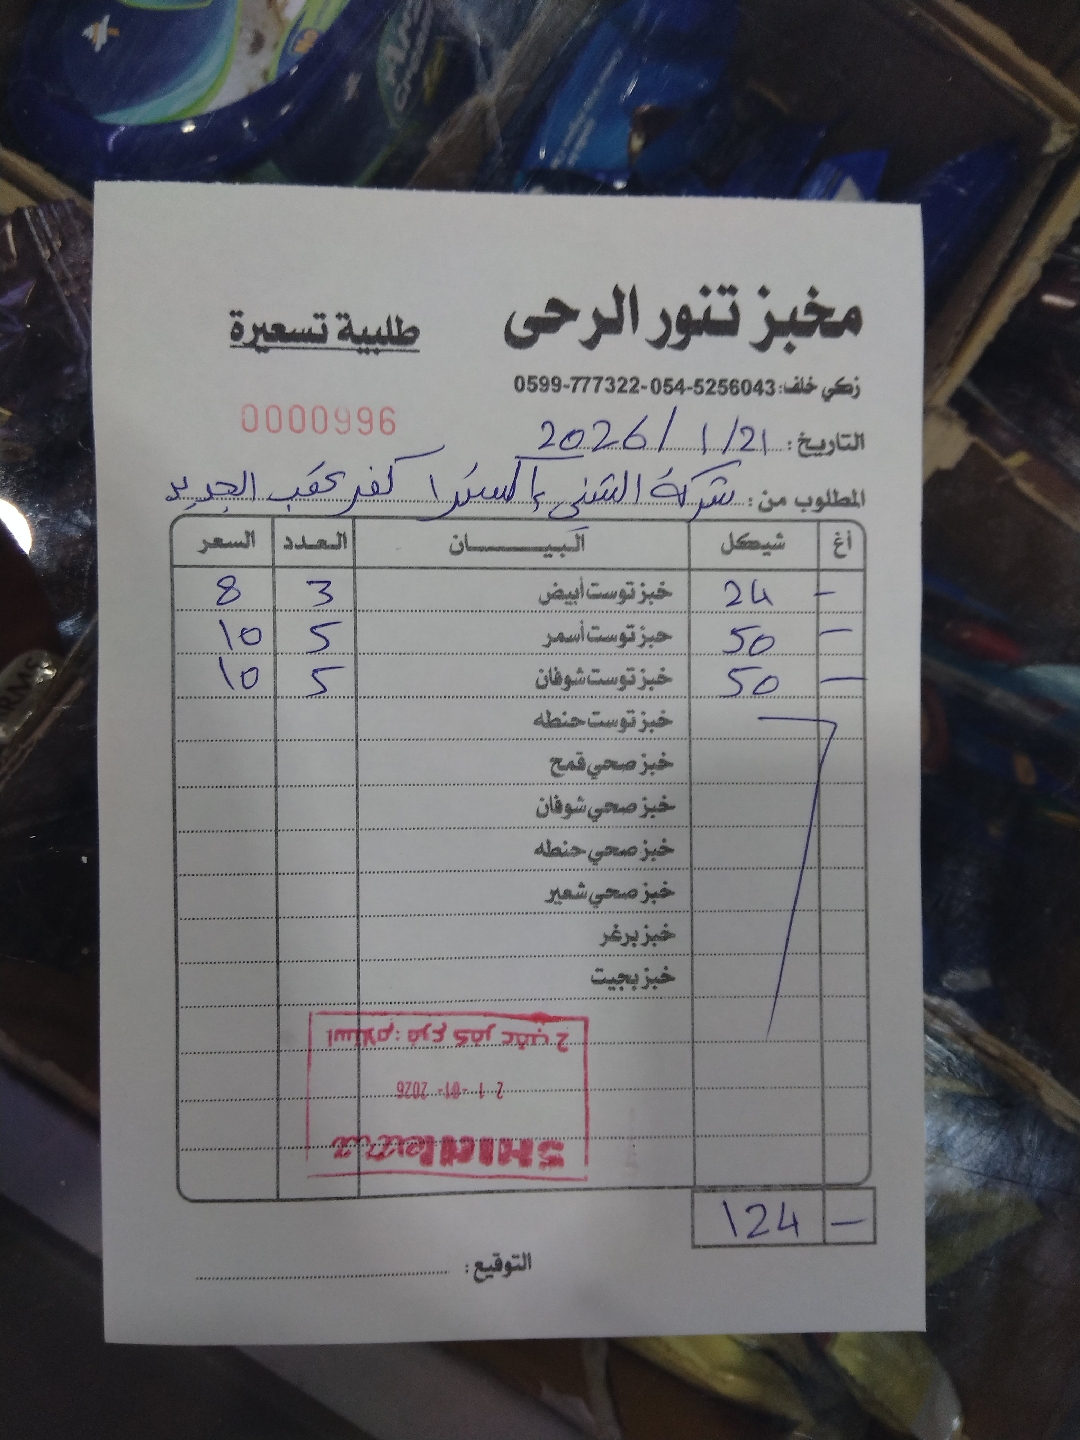 مخبز تنور الرحى
طلبية تسعيرة
زكي خلف: 054-5256043-0599-777322
0000996
التاريخ: 21/1/2026
المطلوب من: شركة الشني إكسترا كفر عقب الجديد
أغ شيكل البيـــــــان العدد السعر
- 24 خبز توست أبيض 3 8
- 50 خبز توست أسمر 5 10
- 50 خبز توست شوفان 5 10
خبز توست حنطه
خبز صحي قمح
خبز صحي شوفان
خبز صحي حنطه
خبز صحي شعير
خبز برغر
خبز بجيت
استلام: فرع كفر عقب 2
21-01-2026
- 124
التوقيع: